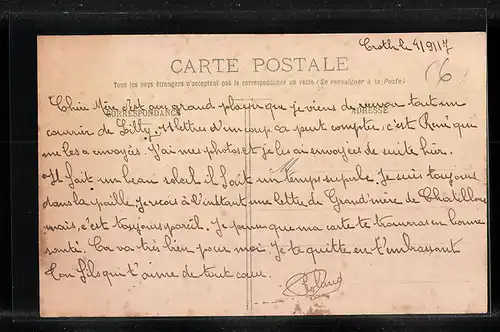 le 4/9/17
CARTE POSTALE
Tous les pays étrangers n'acceptent pas la correspondance au recto (Se renseigner à la Poste)
6
Chère Mère c'est avec grand plaisir que je viens de recevoir tout un
CORRESPONDANCE
ADRESSE
courrier de Lilly, lettres d'un coup ça peut compter, c'est René qui
me les a envoyés. J'ai mes photos et je les ai envoyées de suite hier.
Il fait un beau soleil il fait un temps superbe. Je suis toujours
dans la paille, je reçois à l'instant une lettre de Grand'mère de Chatillon
mais, c'est toujours pareil. Je pense que ma carte te trouvera en bonne
santé. Ca va très bien pour moi. Je te quitte en t'embrassant
Ton fils qui t'aime de tout coeur.
Roland